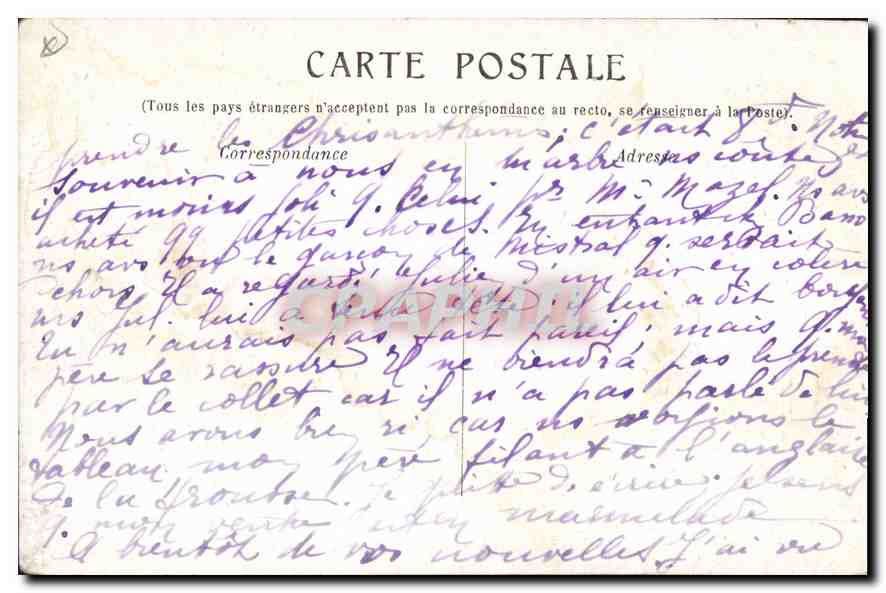 CARTE POSTALE
(Tous les pays étrangers n'acceptent pas la correspondance au recto, se renseigner à la Poste).
Correspondance
Adresse
prendre les Chrisanthems, c'était 8 Notre
souvenir à nous en marbre
il est moins joli q. celui pr M. Mazel. Ns avs
acheté 99 petites choses. En entrant
ns avs vu le garçon de Mistral q. sortait
dehors. Il a regardé Julie d'un air en colère
ms Jul. lui a il lui a dit
Tu n'aurais pas fait pareil, mais q. mon
père se rassure Il ne viendra pas le prendre
par le collet car il n'a pas parlé de lui
Nous avons bien ri, car ns voyions le
tableau mon père filant à l'anglaise
de la Trousse. Je d'écrire je sens
q. mon ventre en marmelade
A bientôt de vos nouvelles. J'ai vu